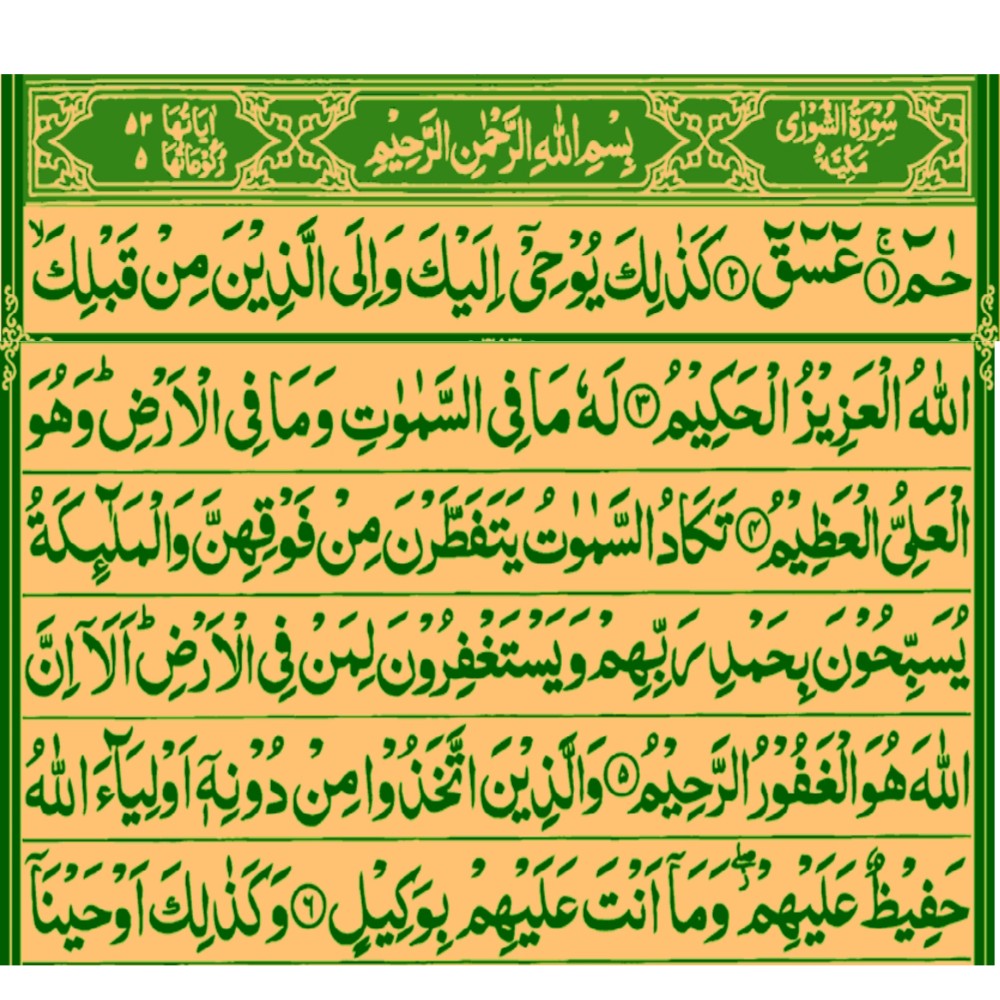 سُوْرَةُ الشُّوْرٰى
مَكِّيَّةٌ
بِسْمِ اللهِ الرَّحْمٰنِ الرَّحِيْمِ
اٰيَاتُهَا ۵۳
رُكُوْعَاتُهَا ۵
حٰمٓ ۚ﴿۱﴾ عٓسٓقٓ ﴿۲﴾ كَذٰلِكَ يُوْحِیْۤ اِلَيْكَ وَاِلَى الَّذِيْنَ مِنْ قَبْلِكَ ۙ
اللهُ الْعَزِيْزُ الْحَكِيْمُ ﴿۳﴾ لَهٗ مَا فِی السَّمٰوٰتِ وَمَا فِی الْاَرْضِ ؕ وَهُوَ
الْعَلِیُّ الْعَظِيْمُ ﴿۴﴾ تَكَادُ السَّمٰوٰتُ يَتَفَطَّرْنَ مِنْ فَوْقِهِنَّ وَالْمَلٰٓئِكَةُ
يُسَبِّحُوْنَ بِحَمْدِ رَبِّهِمْ وَيَسْتَغْفِرُوْنَ لِمَنْ فِی الْاَرْضِ ؕ اَلَاۤ اِنَّ
اللهَ هُوَ الْغَفُوْرُ الرَّحِيْمُ ﴿۵﴾ وَالَّذِيْنَ اتَّخَذُوْا مِنْ دُوْنِهٖۤ اَوْلِيَآءَ اللهُ
حَفِيْظٌ عَلَيْهِمْ ۖ وَمَاۤ اَنْتَ عَلَيْهِمْ بِوَكِيْلٍ ﴿۶﴾ وَكَذٰلِكَ اَوْحَيْنَاۤ